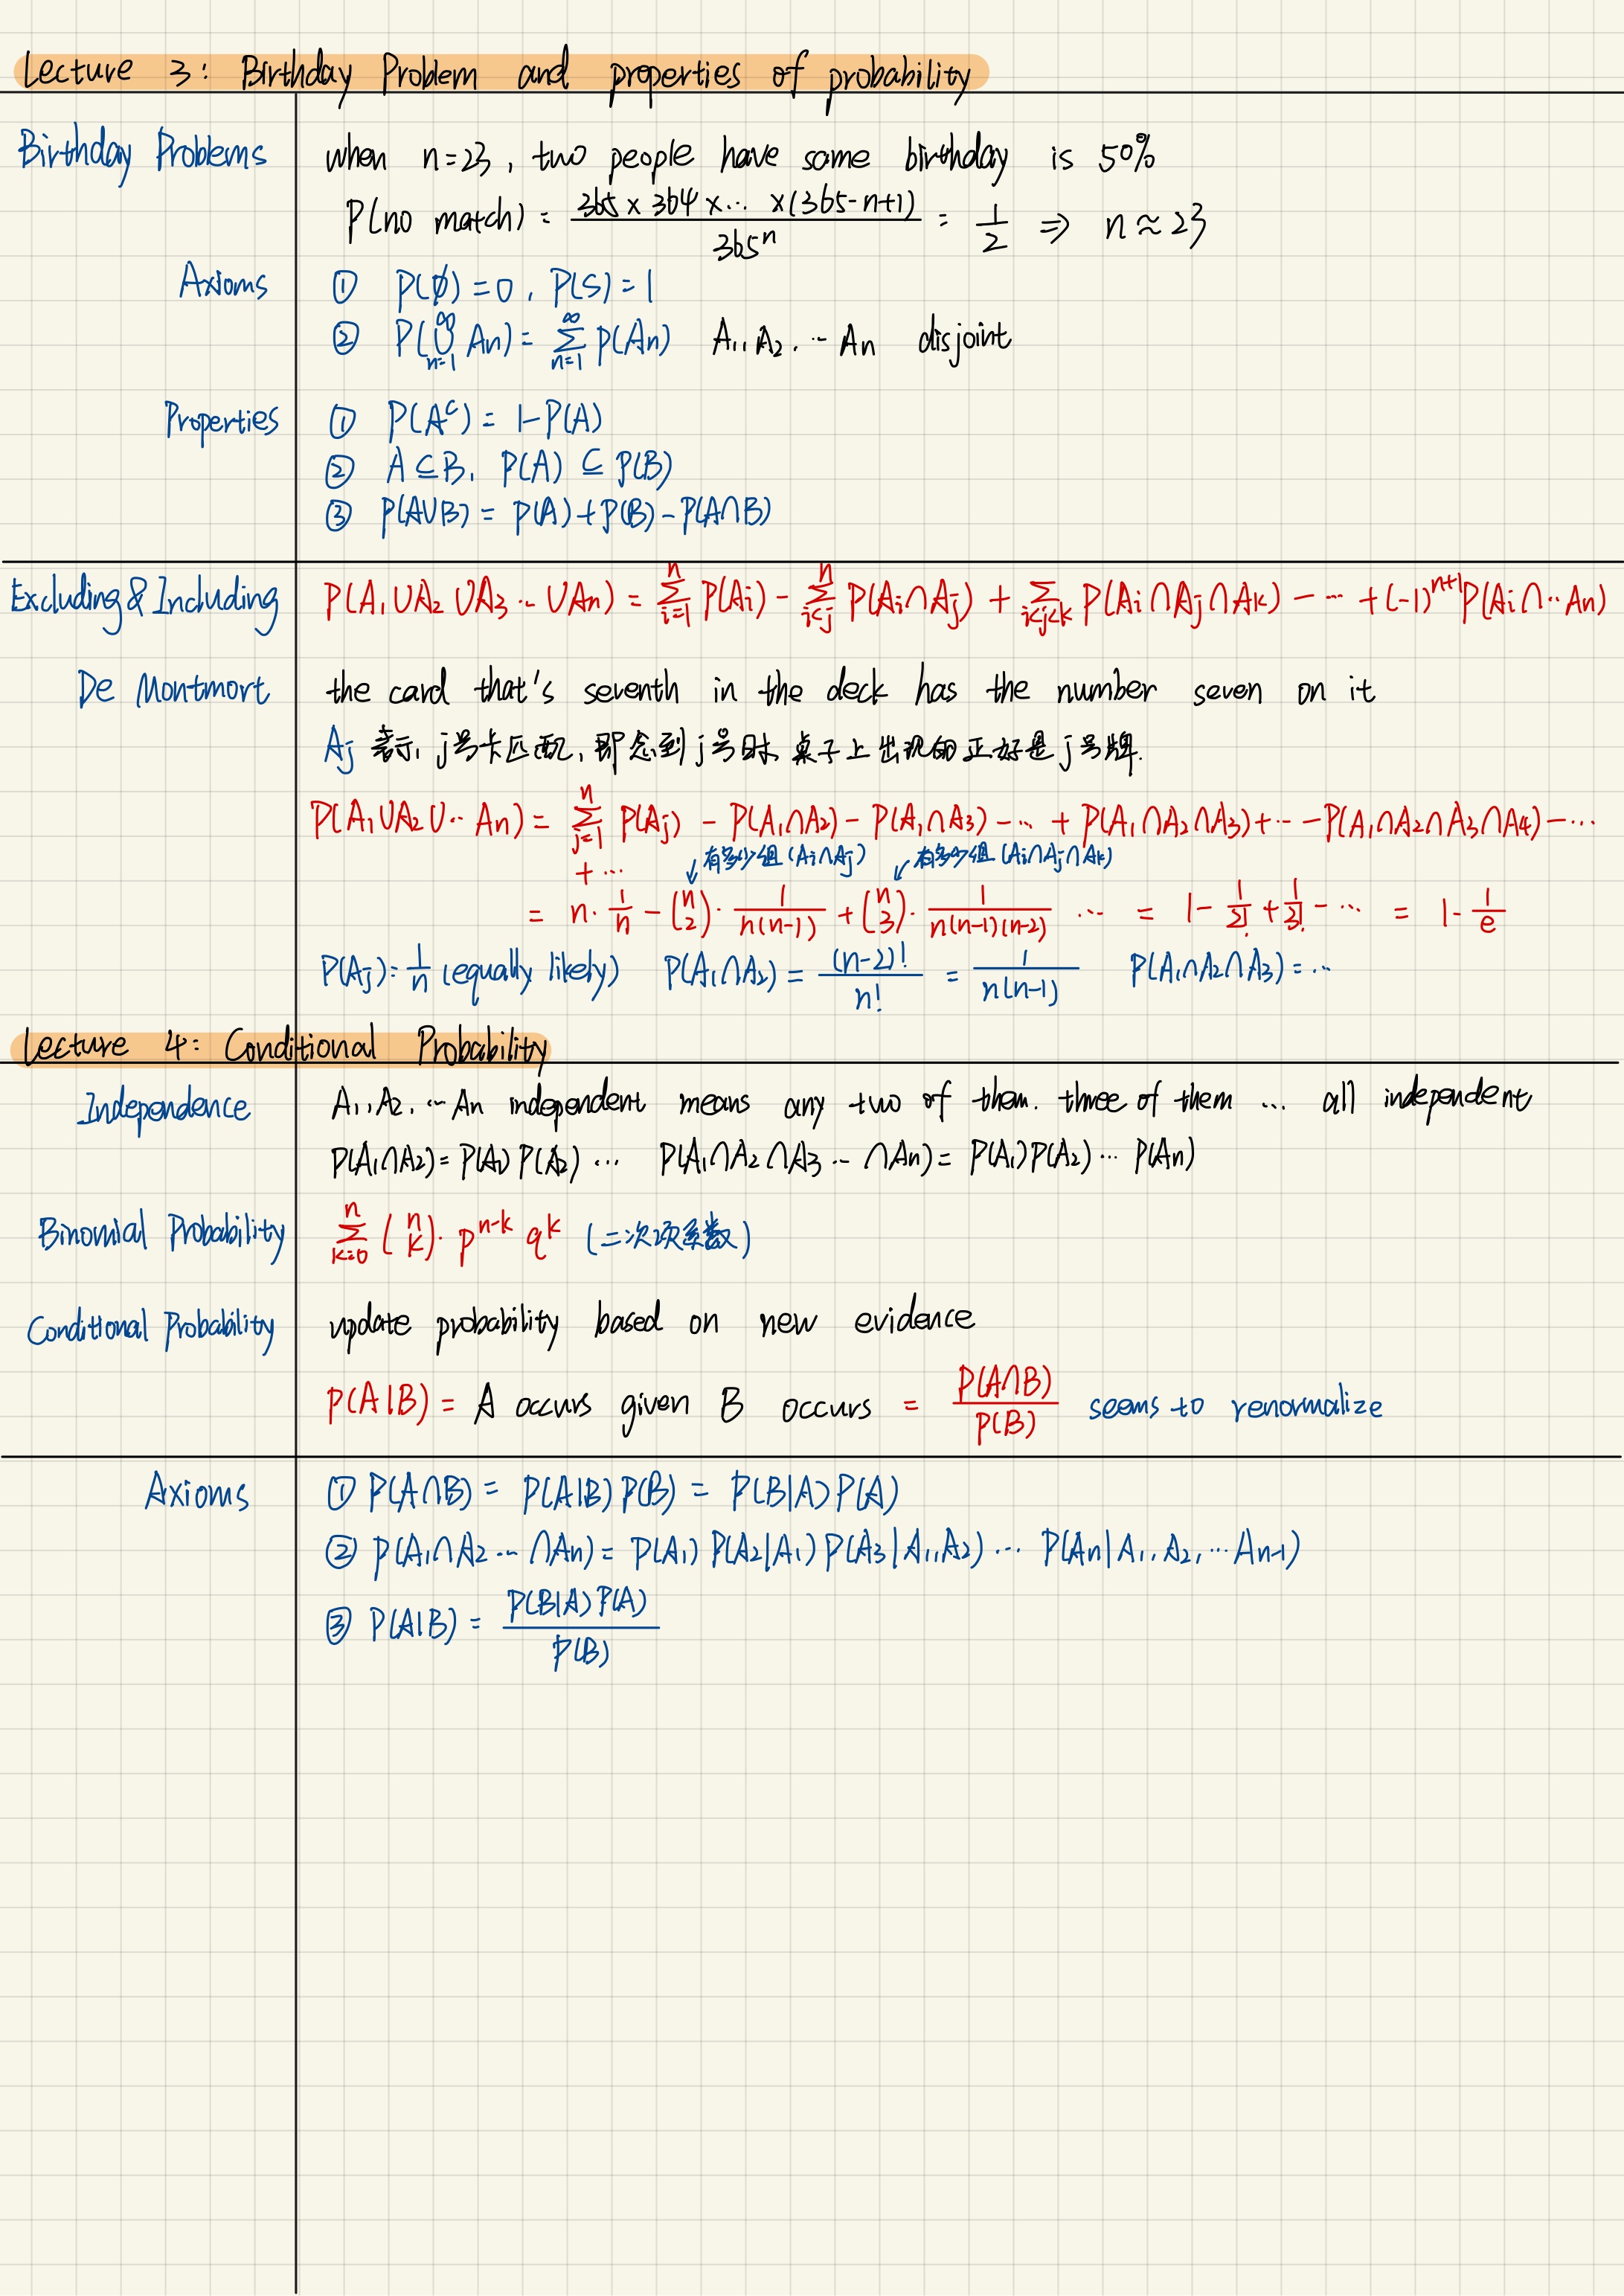 Lecture 3: Birthday Problem and properties of probability
Birthday Problems when n=23, two people have same birthday is 50%
P(no match) = \frac{365×364×⋯×(365-n+1)}{365^n} = \frac{1}{2} ⇒ n≈23
Axioms ① P(∅)=0, P(S)=1
② P(\bigcup_{n=1}^{∞} An) = \sum_{n=1}^{∞} P(An) A₁,A₂,⋯An disjoint
Properties ① P(A^c) = 1-P(A)
② A⊆B, P(A) ⊆ P(B)
③ P(A∪B) = P(A)+P(B)-P(A∩B)
Excluding & Including P(A₁∪A₂∪A₃⋯∪An) = \sum_{i=1}^{n} P(Ai) - \sum_{i<j}^{n} P(Ai∩Aj) + \sum_{i<j<k} P(Ai∩Aj∩Ak) - ⋯ + (-1)^{n+1}P(Ai∩⋯An)
De Montmort the card that's seventh in the deck has the number seven on it
Aj 表示, j号卡匹配, 即念到j号时, 桌子上出现的正好是j号牌.
P(A₁∪A₂∪⋯An) = \sum_{j=1}^{n} P(Aj) - P(A₁∩A₂) - P(A₁∩A₃) - ⋯ + P(A₁∩A₂∩A₃)+⋯ - P(A₁∩A₂∩A₃∩A₄) - ⋯
+ ⋯ ↙有多少组(Ai∩Aj) ↙有多少组(Ai∩Aj∩Ak)
= n·\frac{1}{n} - \binom{n}{2}·\frac{1}{n(n-1)} + \binom{n}{3}·\frac{1}{n(n-1)(n-2)} ⋯ = 1-\frac{1}{2!}+\frac{1}{3!}-⋯ = 1-\frac{1}{e}
P(Aj)=\frac{1}{n} (equally likely) P(A₁∩A₂) = \frac{(n-2)!}{n!} = \frac{1}{n(n-1)} P(A₁∩A₂∩A₃)=⋯
Lecture 4: Conditional Probability
Independence A₁,A₂,⋯An independent means any two of them. three of them ⋯ all independent
P(A₁∩A₂)=P(A₁)P(A₂)⋯ P(A₁∩A₂∩A₃⋯∩An)=P(A₁)P(A₂)⋯P(An)
Binomial Probability \sum_{k=0}^{n} \binom{n}{k}·p^{n-k} q^k (二次项系数)
Conditional Probability update probability based on new evidence
P(A|B) = A occurs given B occurs = \frac{P(A∩B)}{P(B)} seems to renormalize
Axioms ① P(A∩B) = P(A|B)P(B) = P(B|A)P(A)
② P(A₁∩A₂⋯∩An) = P(A₁)P(A₂|A₁)P(A₃|A₁,A₂)⋯P(An|A₁,A₂,⋯An-1)
③ P(A|B) = \frac{P(B|A)P(A)}{P(B)}